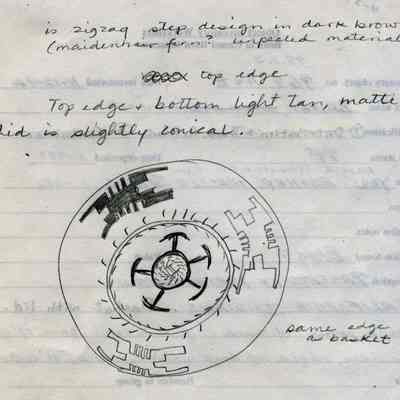 is zigzag step design in dark brow
(maidenhair fern? inspected material
top edge
Top edge + bottom light tan, matte
lid is slightly conical.
same edge
a basket